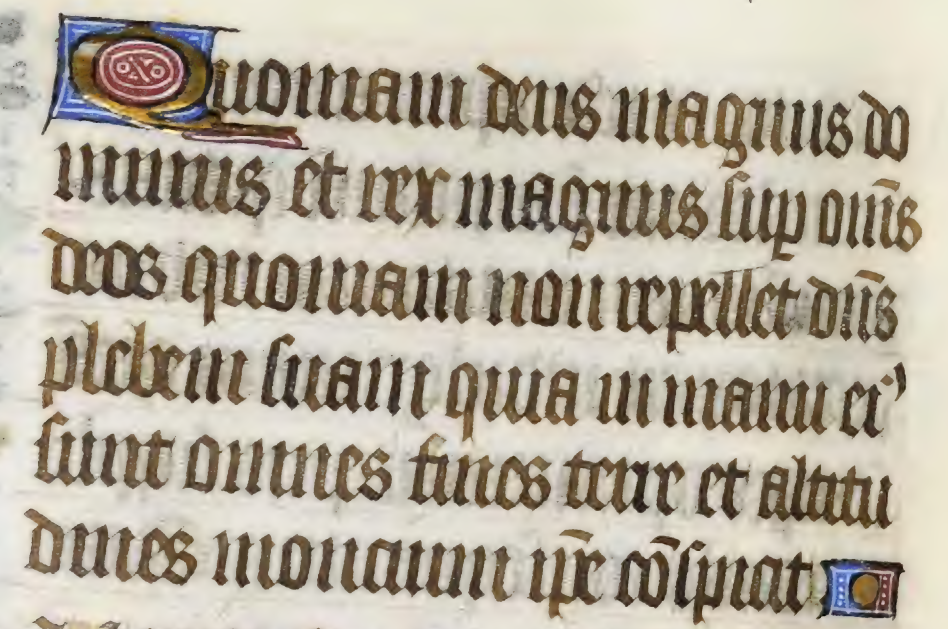 Quoniam deus magnus do
minus et rex magnus sup om̄s
deos quoniam non repellet dn̄s
plebem suam quia in manu ei⁹
sunt omnes fines terre et altitu
dines moncium ip̄e cōspicit